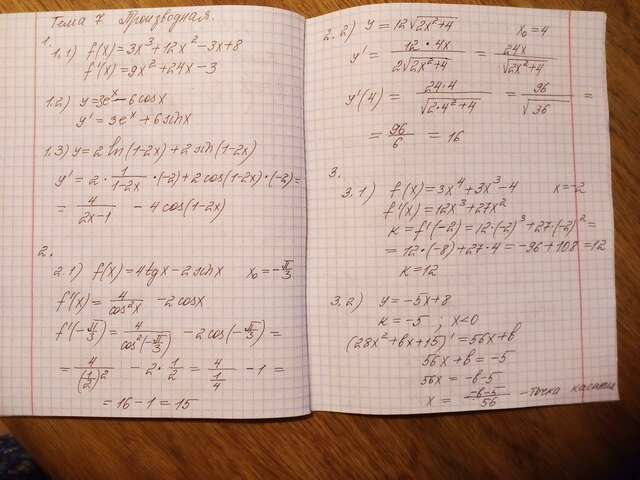 Тема 7 Производная.
1.
1.1) f(x)=3x³+12x²-3x+8
f'(x)=9x²+24x-3
1.2) y=3eˣ-6cosx
y'=3eˣ+6sinx
1.3) y=2ln(1-2x)+2sin(1-2x)
y'=2·1/(1-2x)·(-2)+2cos(1-2x)·(-2)=
=4/(2x-1) -4cos(1-2x)
2.
2.1) f(x)=4tgx-2sinx x₀=-π/3
f'(x)=4/cos²x -2cosx
f'(-π/3)=4/cos²(-π/3) -2cos(-π/3)=
=4/(1/2)² -2·1/2=4/(1/4) -1=
=16-1=15
2.2) y=12√(2x²+4) x₀=4
y'=12·4x/(2√(2x²+4)) =24x/√(2x²+4)
y'(4)=24·4/√(2·4²+4) =96/√36 =
=96/6 =16
3.
3.1) f(x)=3x⁴+3x³-4 x=-2
f'(x)=12x³+27x²
к=f'(-2)=12·(-2)³+27(-2)²=
=12·(-8)+27·4=-96+108=12
к=12
3.2) y=-5x+8
к=-5, x<0
(28x²+вx+15)'=56x+в
56x+в=-5
56x=-в-5
x=(-в-5)/56 -точка касания